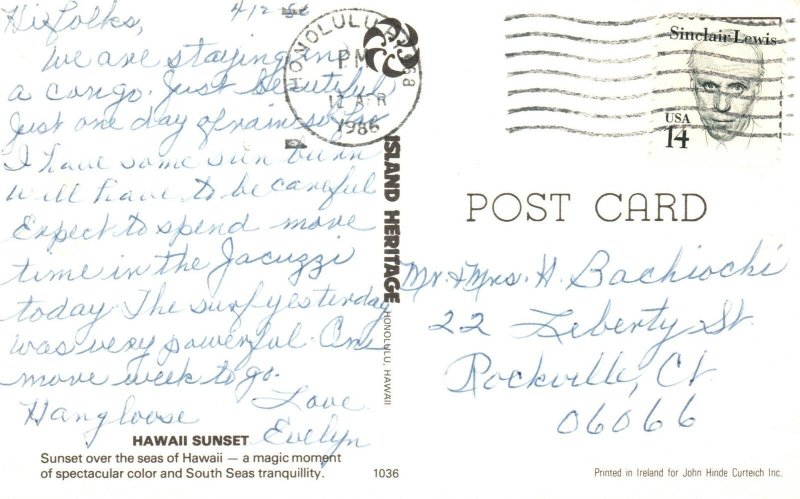 Hi Folks, 4/12
We are staying in
a congo. Just beautiful
Just one day of rain so far
I have some sun burn
will have to be careful
Expect to spend more
time in the Jacuzzi
today The surf yesterday
was very powerful. One
more week to go.
Hang loose Love
Evelyn
HAWAII SUNSET
Sunset over the seas of Hawaii — a magic moment
of spectacular color and South Seas tranquillity. 1036
HONOLULU
PM
12 APR
1986
968
ISLAND HERITAGE
HONOLULU, HAWAII
Sinclair Lewis
USA
14
POST CARD
Mr. & Mrs. H. Bachiochi
22 Liberty St.
Rockville, Ct
06066
Printed in Ireland for John Hinde Curteich Inc.